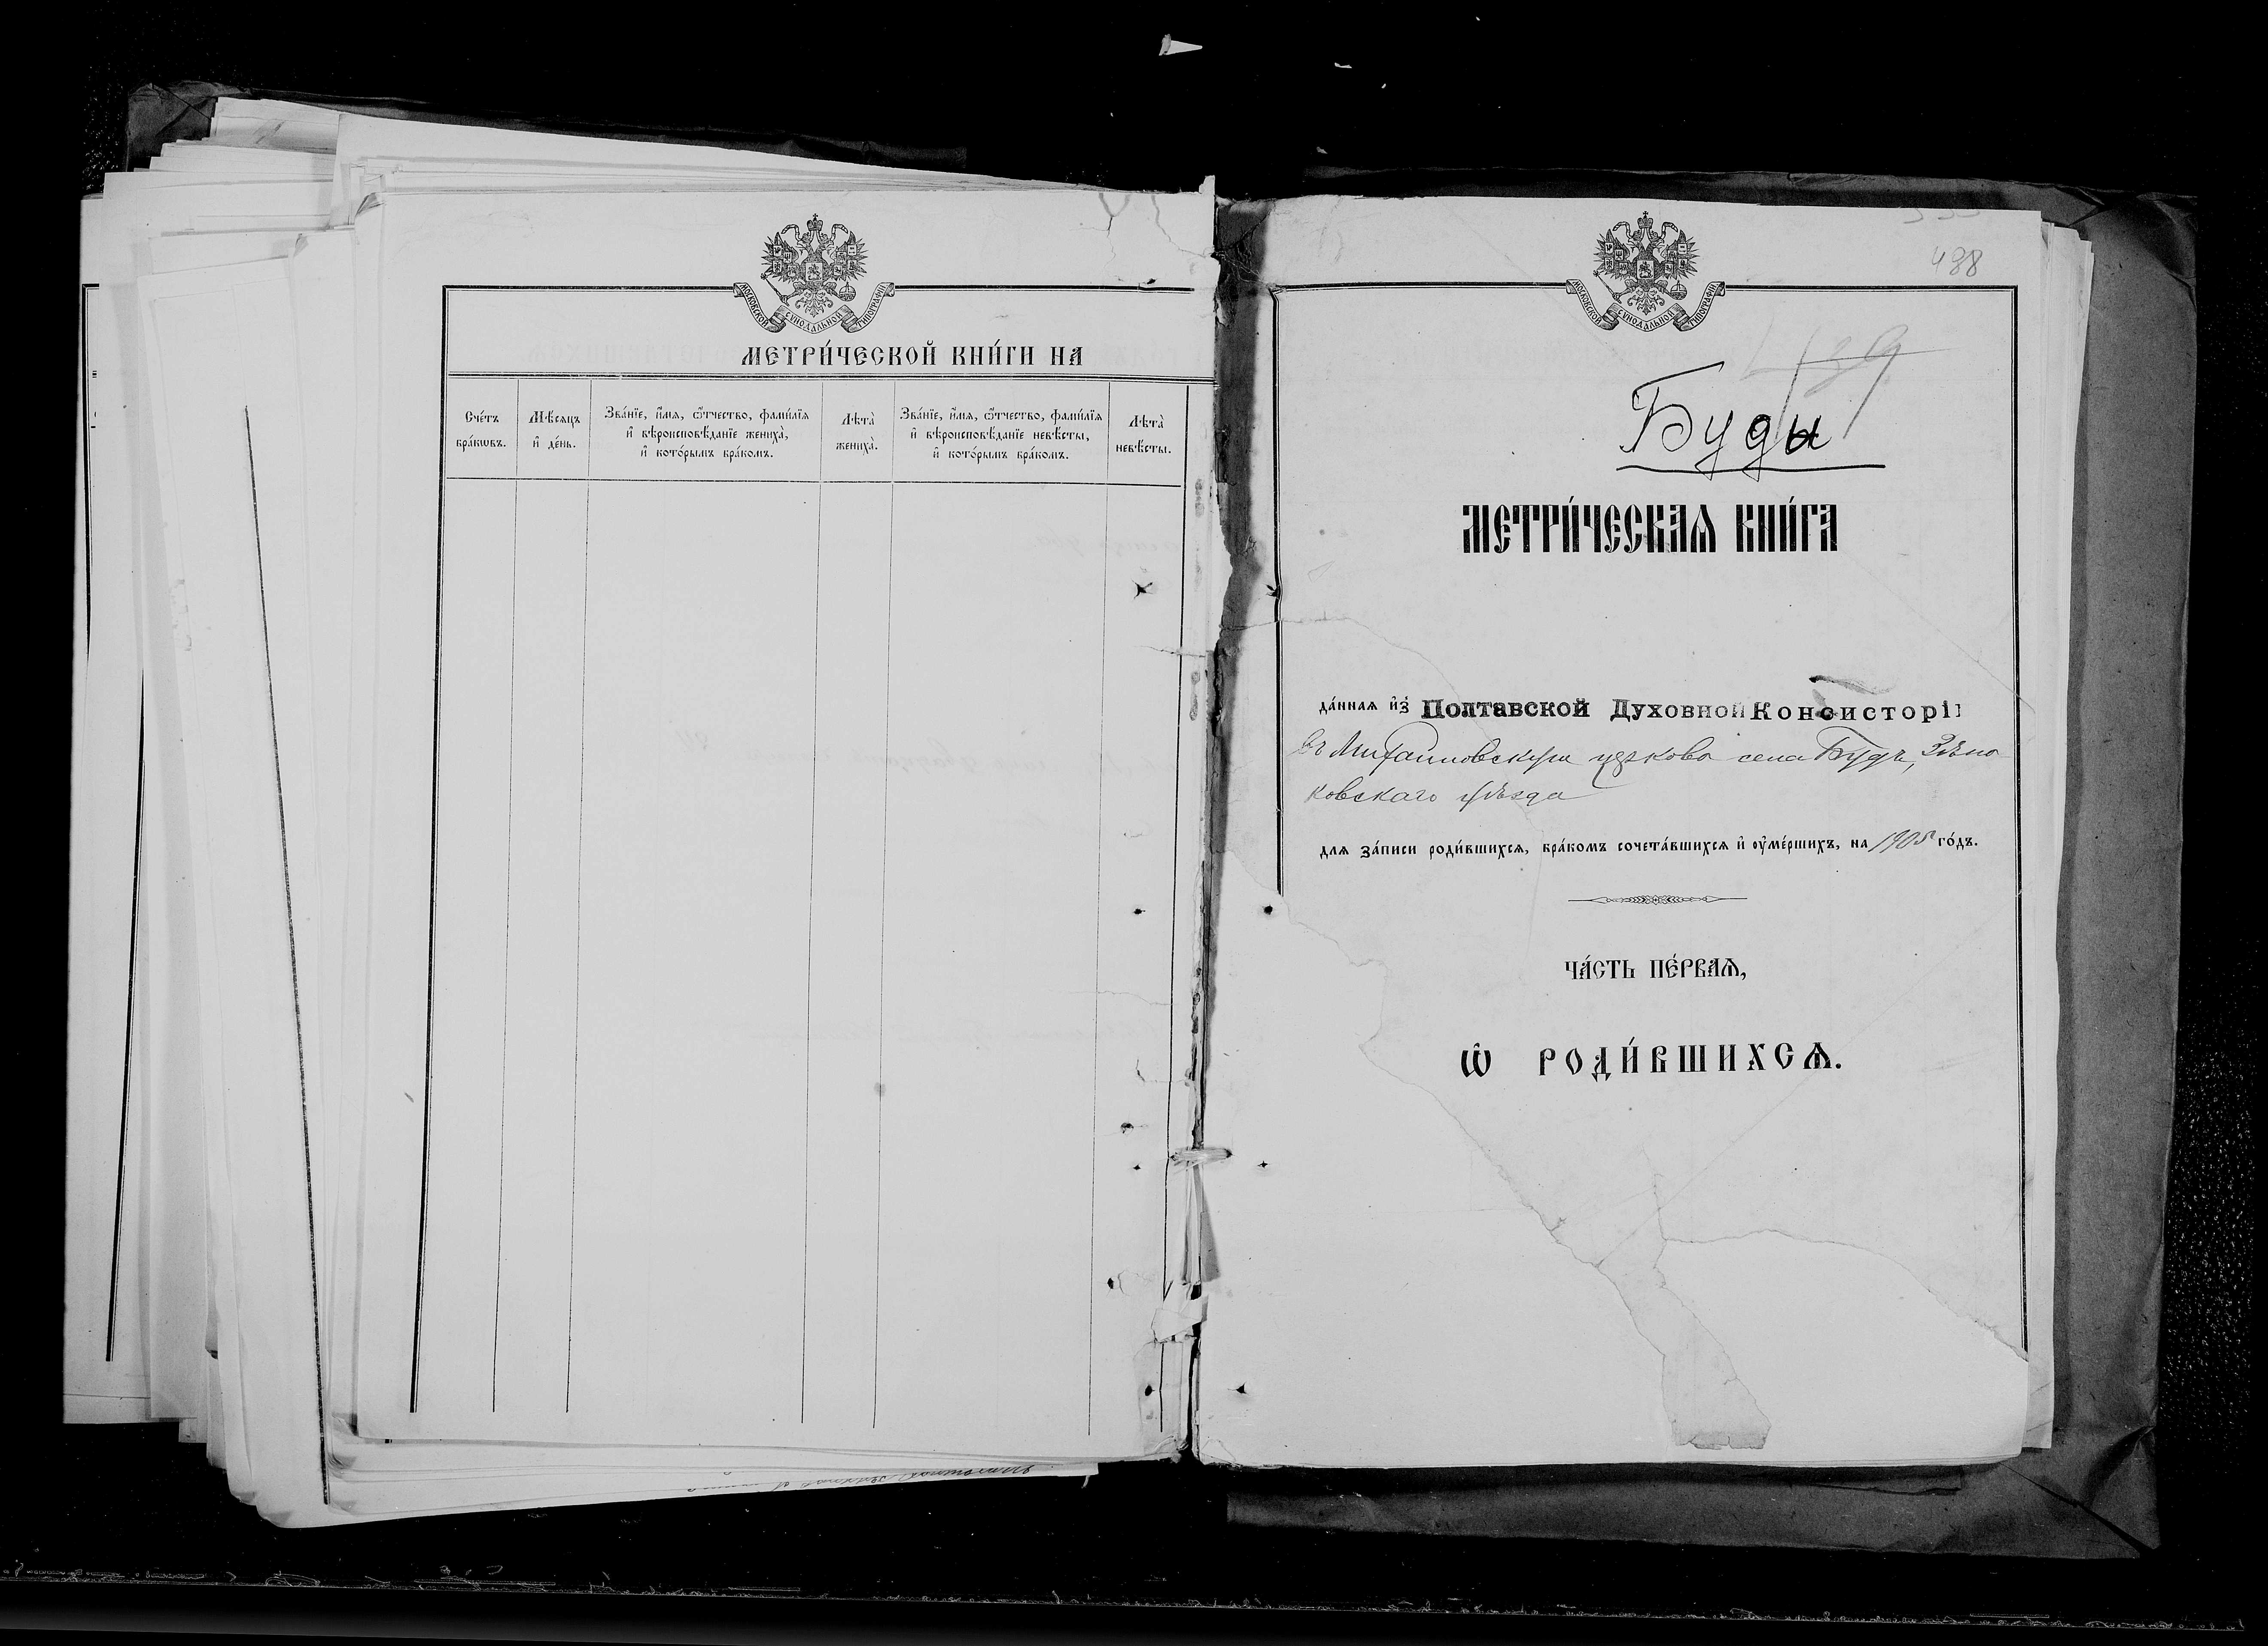 МОСКОВСКОЙ СѴНОДАЛЬНОЙ ТИПОГРАФІИ
МЕТРИ́ЧЕСКОЙ КНИ́ГИ НА
Сче́тъ бра́кѡвъ.
Мѣ́сяцъ и҆ де́нь.
Зва́нїе, и҆́мѧ, ѻ҆́тчество, фами́лїѧ
и҆ вѣроисповѣ́данїе жениха̀,
и҆ кото́рымъ бра́комъ.
Лѣта̀ жениха̀.
Зва́нїе, и҆́мѧ, ѻ҆́тчество, фами́лїѧ
и҆ вѣроисповѣ́данїе невѣ́сты,
и҆ кото́рымъ бра́комъ.
Лѣта̀ невѣ́сты.
488
МОСКОВСКОЙ СѴНОДАЛЬНОЙ ТИПОГРАФІИ
439
Буды
МЕТРИ́ЧЕСКАѦ КНИ́ГА
да́ннаѧ и҆з̾ Полтавской Духовной Консисторіи
въ Михайловскую церковь села Будъ, Зѣнь
ковскаго уѣзда
длѧ за́писи роди́вшихсѧ, бра́комъ сочета́вшихсѧ и҆ ᲂу҆ме́ршихъ, на 1905 го́дъ.
ЧА́СТЬ ПЕ́РВАѦ,
Ѽ РОДИ́ВШИХСѦ.